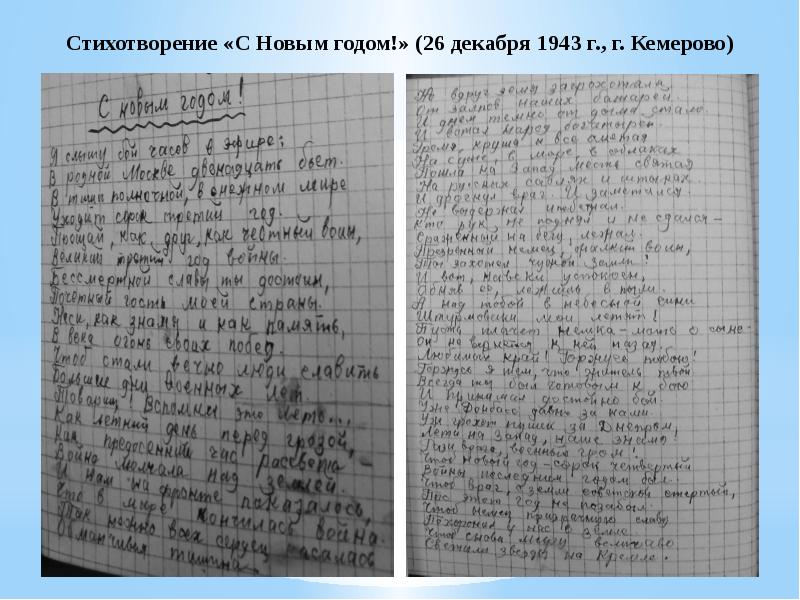 Стихотворение «С Новым годом!» (26 декабря 1943 г., г. Кемерово)
С новым годом!
Я слышу бой часов в эфире:
В родной Москве двенадцать бьет.
В тиши полночной, в снежном мире
Уходит срок третий год.
Прощай, как друг, как честный воин,
Великий третий год войны.
Бессмертной славы ты достоин,
Почетный гость моей страны.
Неси, как знамя и как память,
В века огонь своих побед.
Чтоб стали вечно люди славить
Большие дни военных лет.
Товарищ! Вспомни это лето...
Как летний день перед грозой,
Как предосенний час рассвета –
Война молчала над землей.
И нам на фронте показалось,
Что в мире кончилась война.
Так нежно всех сердец касалась
Обманчивая тишина.
Но вдруг земля загрохотала
От залпов наших батарей.
И днем темно от дыма стало.
И встал народ богатырей.
Громя, круша и все сметая
На суше, в море, в облаках
Пошла на Запад месть святая
На русских саблях и штыках.
И дрогнул враг. И заметался.
Не выдержал и побежал.
Кто рук не поднял и не сдался –
Сраженный на бегу, лежал.
Презренный немец, воин,
Ты захотел чужой земли!
И вот, навеки успокоен,
Обняв ее, лежишь в пыли.
А над тобой в небесной сини
Штурмовики мои летят!
Пусть плачет немка-мать о сыне –
Он не вернется к ней назад.
Любимый край! Горжусь тобою!
Горжусь я тем, что житель твой.
Всегда ты был готовым к бою
И принимал достойно бой.
Уже Донбасс давно за нами.
Уж грохот пушек за Днепром,
Лети на Запад, наше знамя!
Рази врага, военный гром!
Чтоб новый год – сорок четвертый
Войны последним годом был.
Чтоб враг, с земли советской стертый,
Про этот год не позабыл.
Чтоб немец призрачную славу
Похоронил у нас в земле.
Чтоб снова мирно величаво
Светили звезды на Кремле.